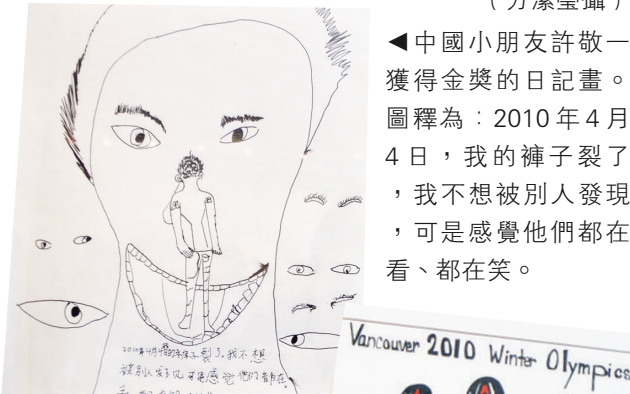 （方潔瑩攝）
◀中國小朋友許敬一
獲得金獎的日記畫。
圖釋為：2010年4月
4日，我的褲子裂了
，我不想被別人發現
，可是感覺他們都在
看、都在笑。
裂了，我不想
被别人发现，可是感觉他们都在
Vancouver 2010 Winter Olympics